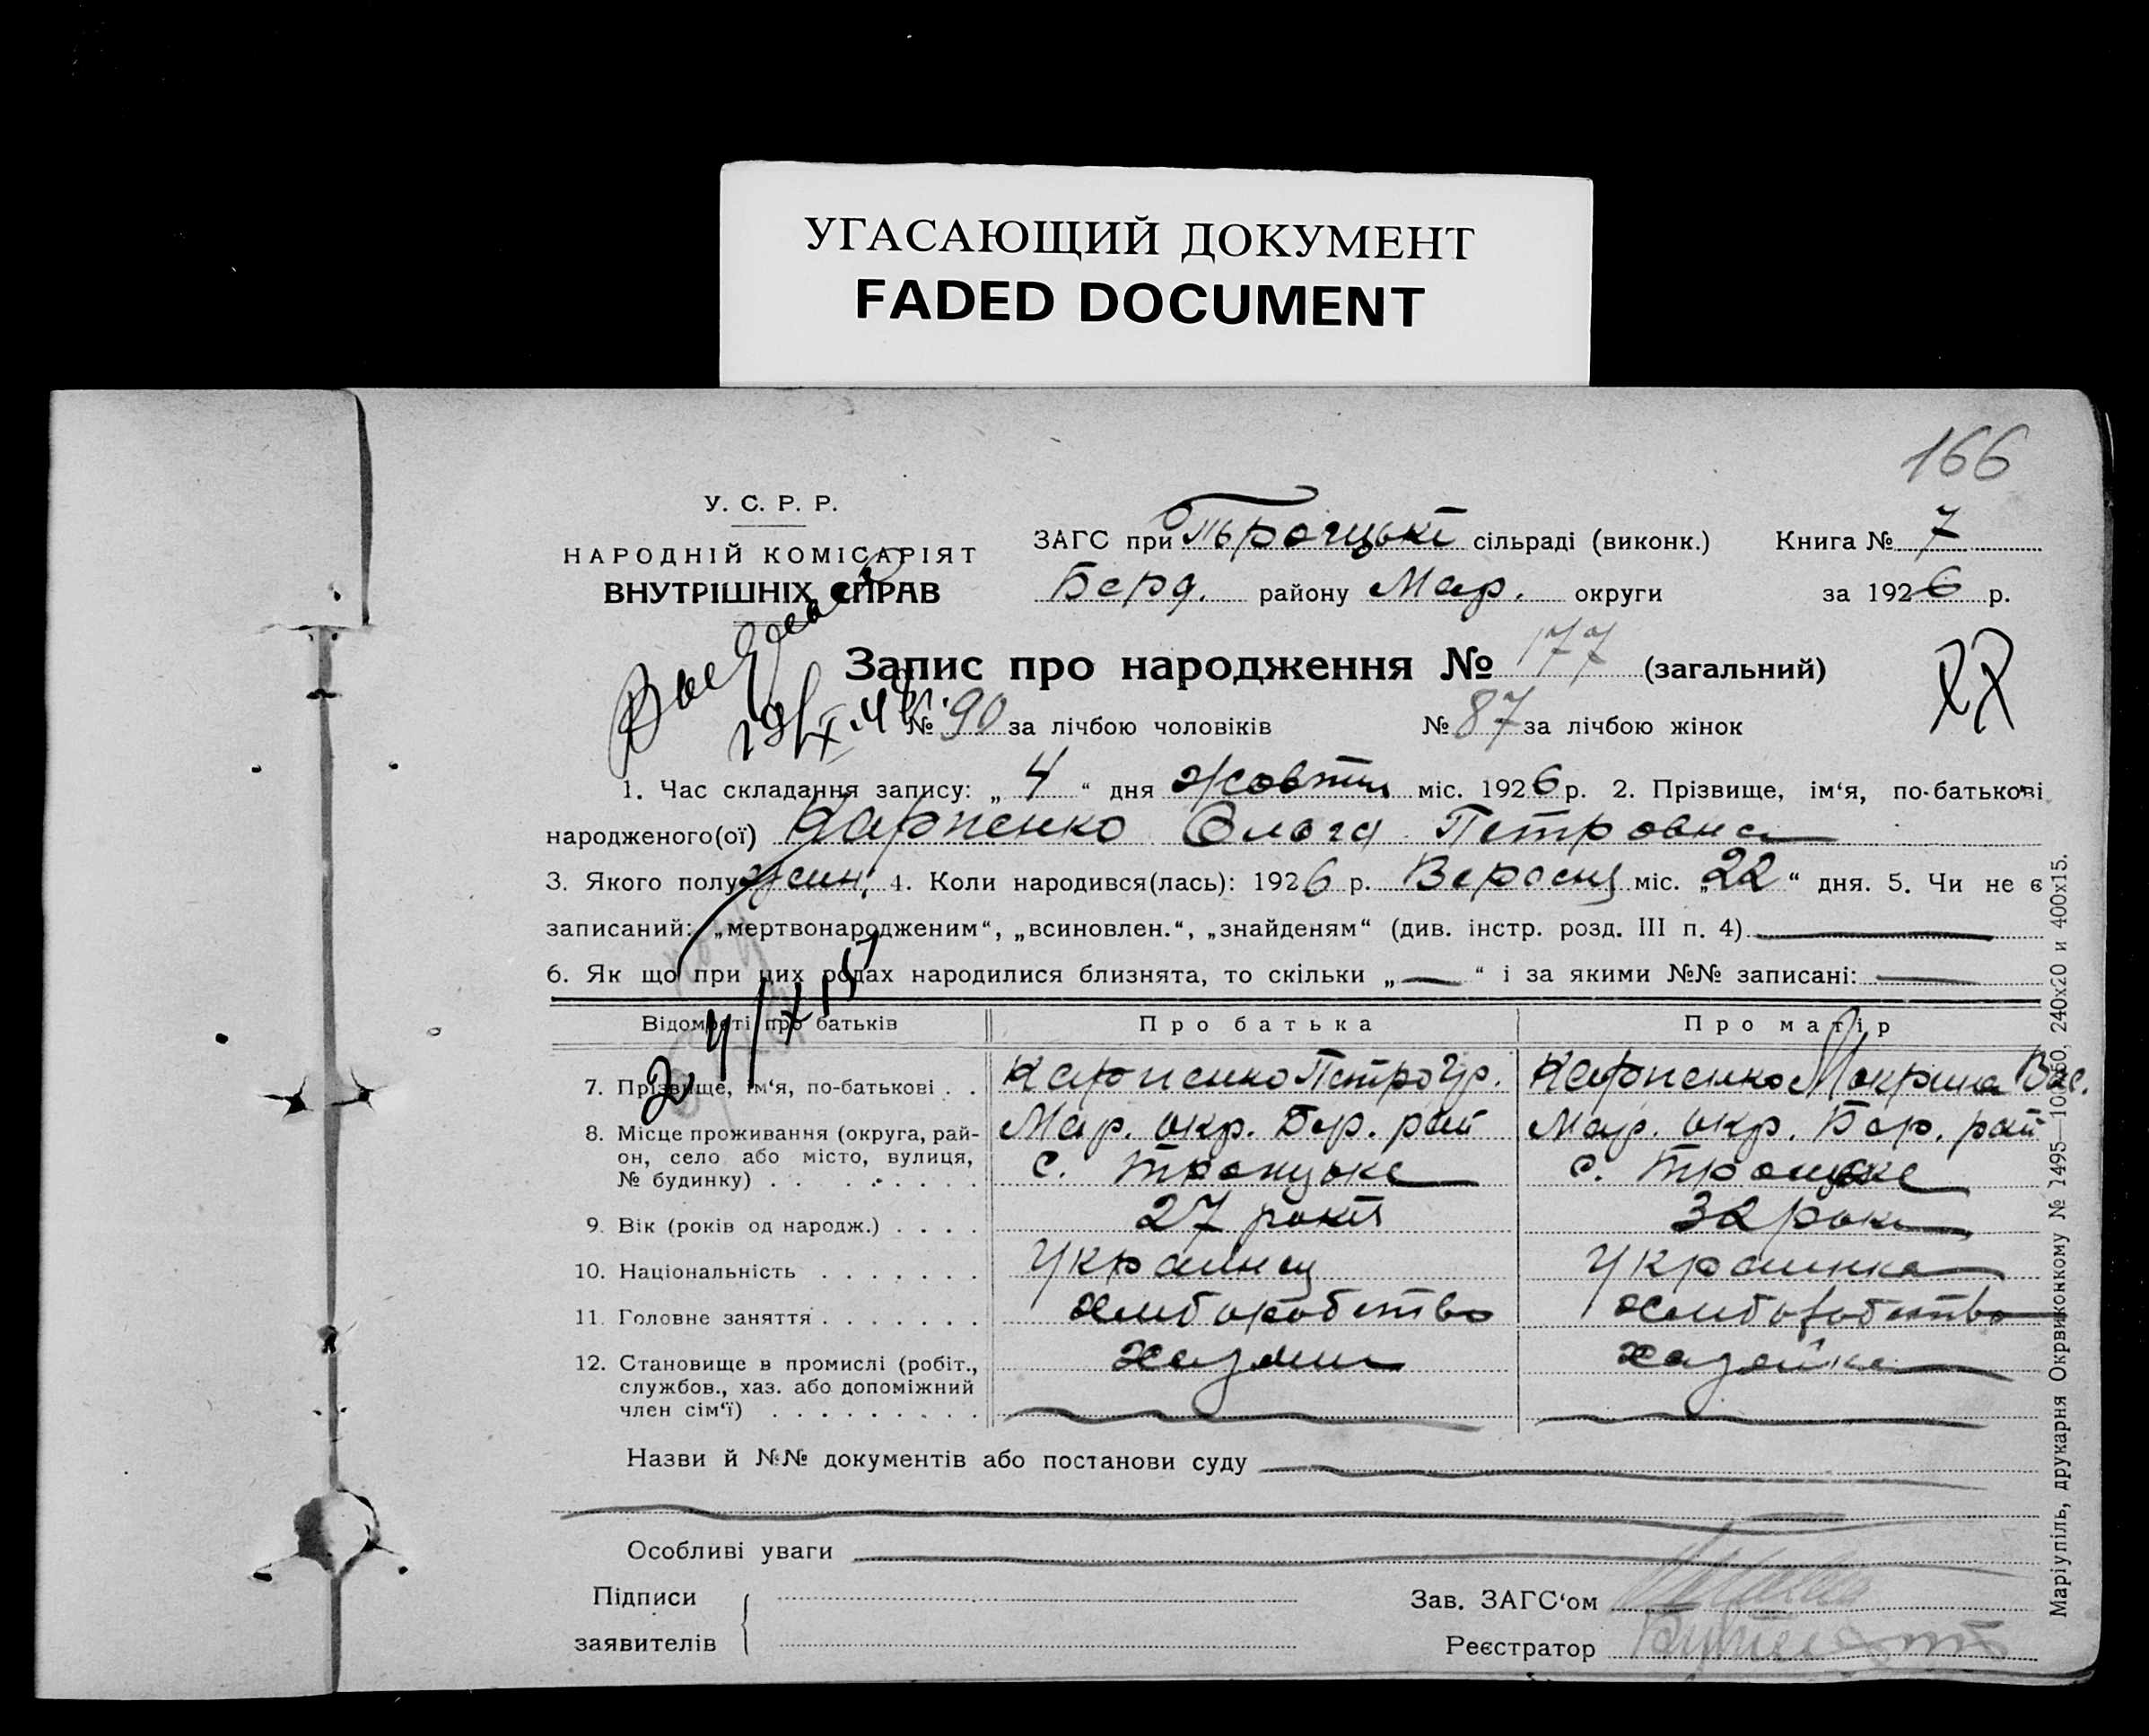 УГАСАЮЩИЙ ДОКУМЕНТ
FADED DOCUMENT
166
У. С. Р. Р.
НАРОДНІЙ КОМІСАРІЯТ
ВНУТРІШНІХ СПРАВ
ЗАГС при сільраді (виконк.) Книга № 7
Берд. району Мар. округи за 1926 р.
Запис про народження № 177 (загальний)
№ 90 за лічбою чоловіків № 87 за лічбою жінок
1. Час складання запису: „ 4 “ дня жовтня міс. 1926 р. 2. Прізвище, ім‘я, по-батькові
народженого(ої) Карпенко Ольга Петровна
3. Якого полу жін. 4. Коли народився(лась): 1926 р. Вересня міс. „22“ дня. 5. Чи не є
записаний: „мертвонародженим“, „всиновлен.“, „знайденям“ (див. інстр. розд. III п. 4)
6. Як що при цих родах народилися близнята, то скільки „ — “ і за якими №№ записані: —
Відомості про батьків Про батька Про матір
7. Прізвище, ім‘я, по-батькові . . Карпенко Петро Гр. Карпенко Мокрина Вас.
8. Місце проживання (округа, рай- Мар. окр. Бер. рай Мар. окр. Бер. рай
он, село або місто, вулиця, с. Троцьке с. Троцьке
№ будинку) . . . . . . . . .
9. Вік (років од народж.) . . . . 27 років 32 роки
10. Національність . . . . . . . Украинец Украинка
11. Головне заняття . . . . . . . хлиборобство хлиборобство
12. Становище в промислі (робіт., хазяин хазяйка
службов., хаз. або допоміжний
член сім‘ї) . . . . . . . . .
Назви й №№ документів або постанови суду
Особливі уваги
Підписи
заявителів
Зав. ЗАГС‘ом
Реєстратор
Маріупіль, друкарня Окрвиконкому № 1495—10250. 240х20 и 400х15.